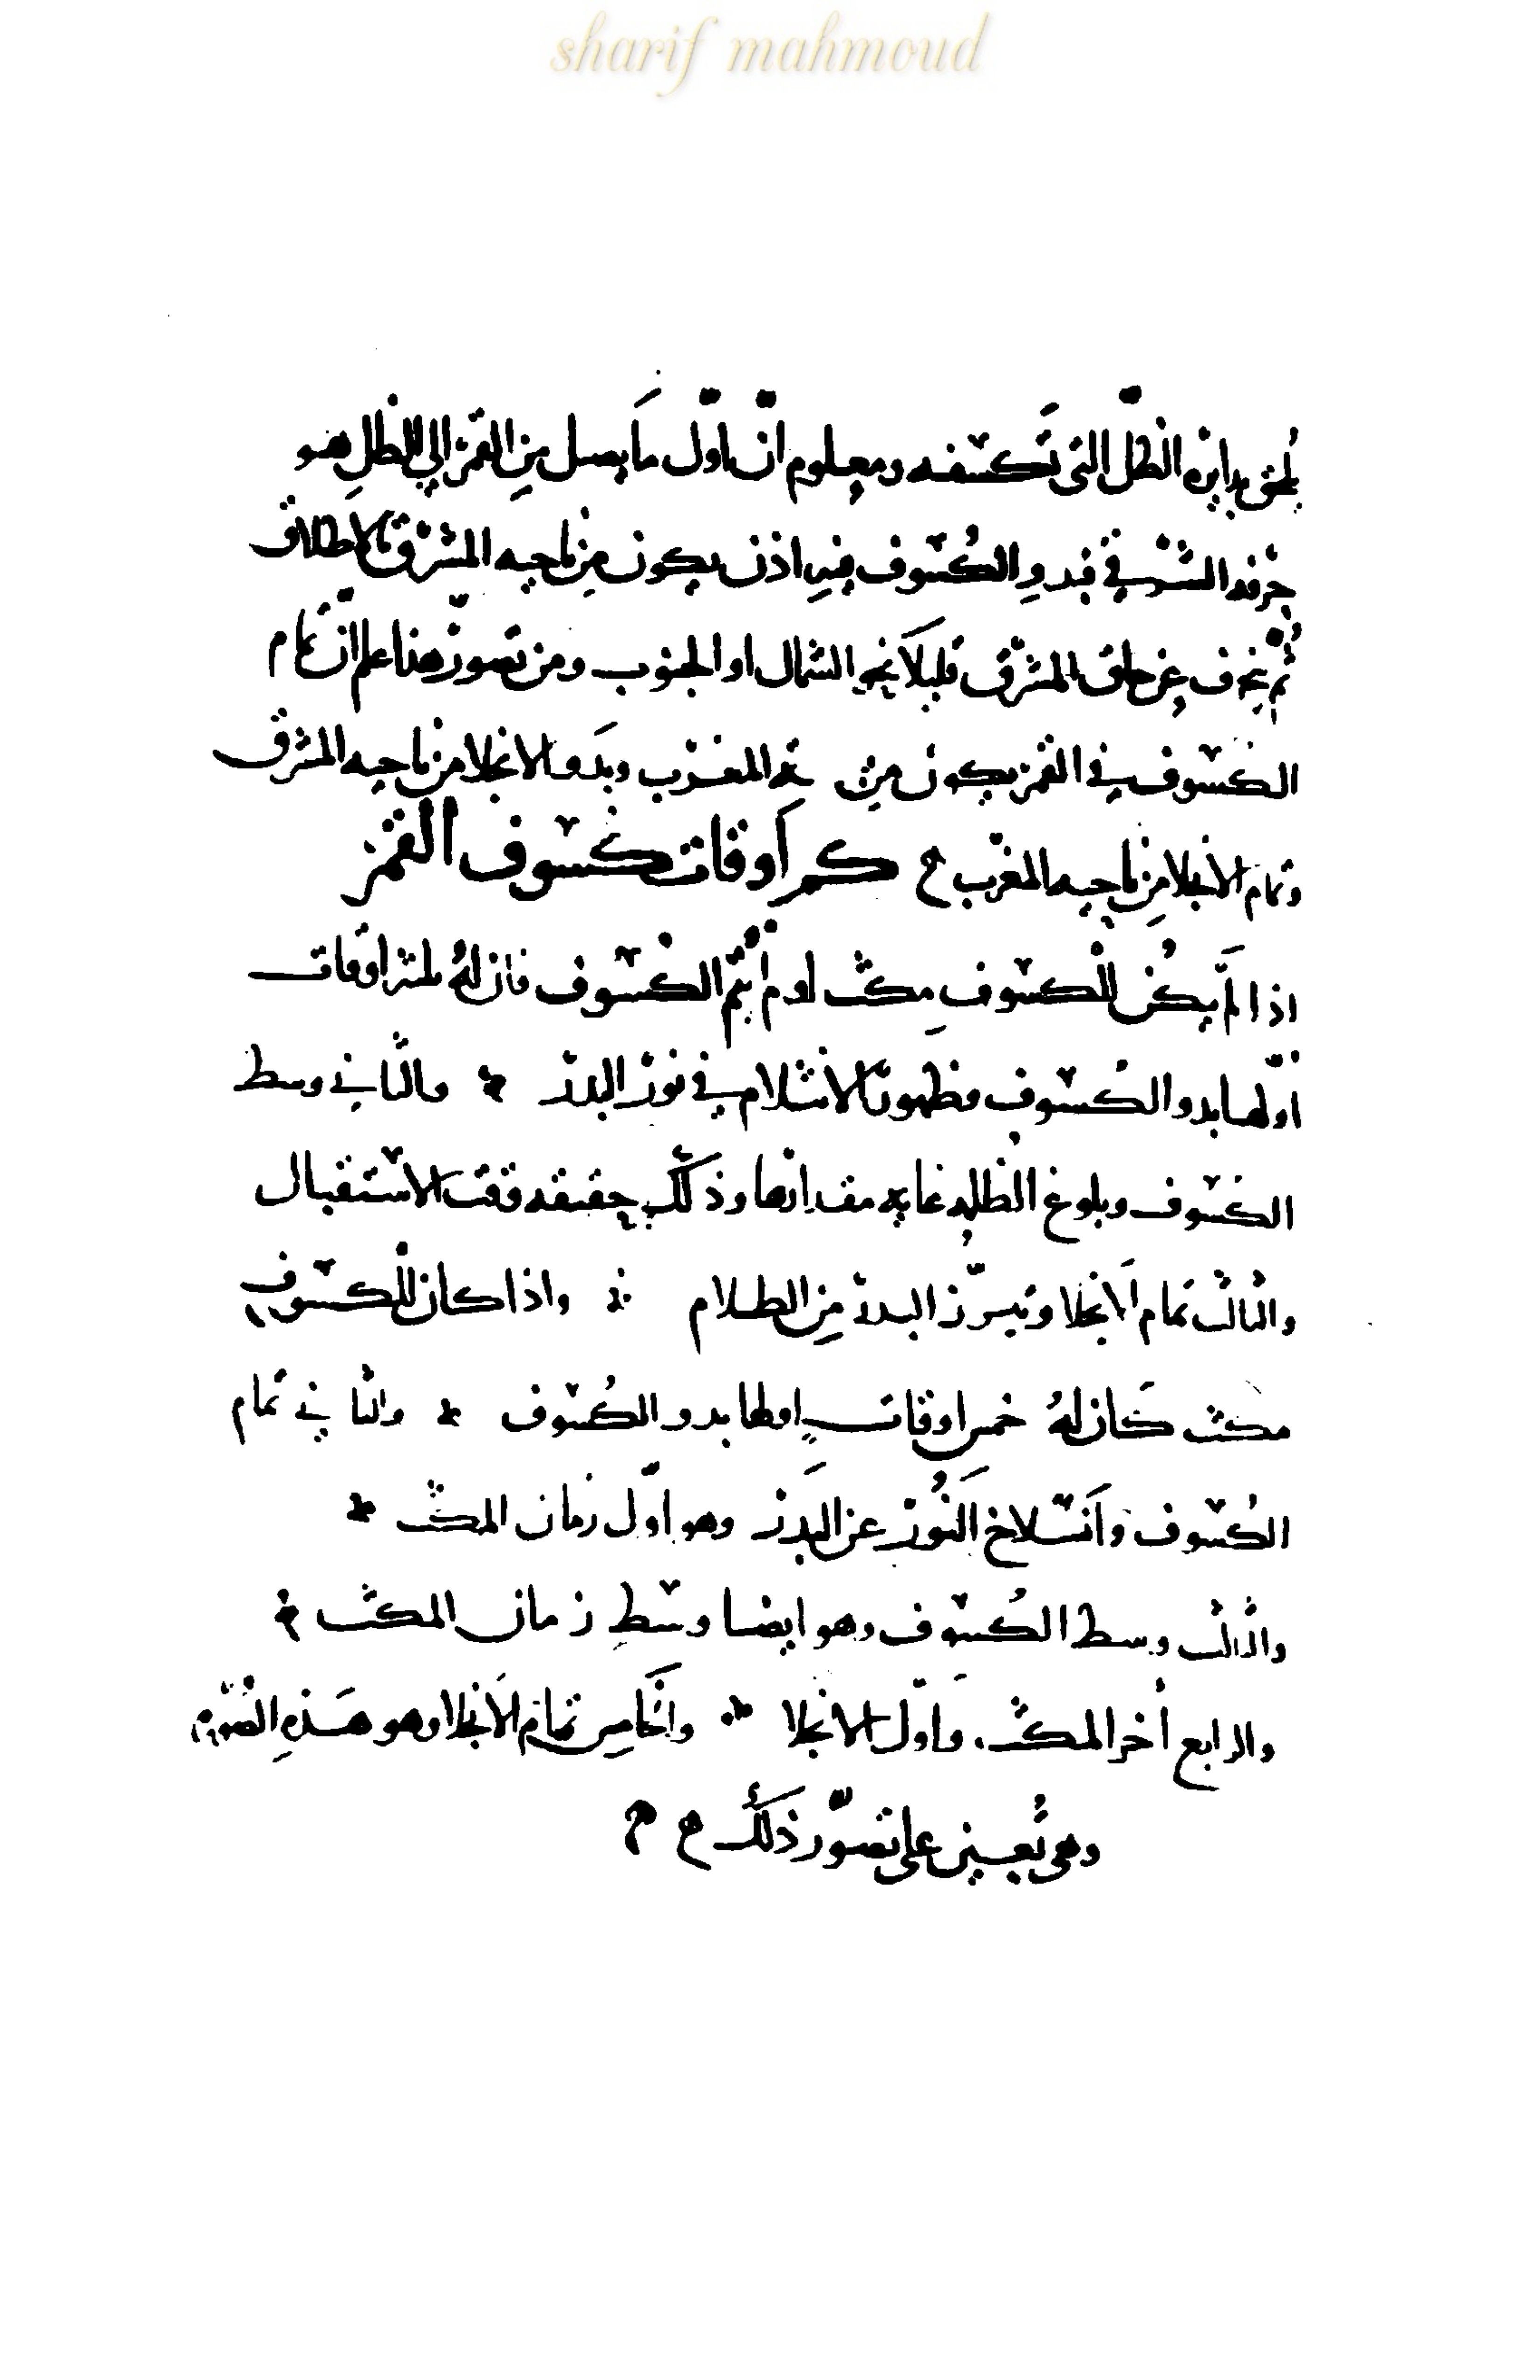 sharif mahmoud
يلحق بدايره الظلّ التى تكسفه ومعلوم انّ اوّل ما يصل من القمر الي الظل هو
حرفه الشرقي فبدو الكسوف فيه اذن يكون من ناحيه المشرق بالاطلاق
ثم ينحرف عن حاق المشرق قليلا نحو الشمال او الجنوب ومن تصور هذا علم انّ تمام
الكسوف في القمر يكون من المغرب وبدو الانجلا من ناحيه المشرق
وتمام الانجلا من ناحيه المغرب كم اوقات كسوف القمر
اذا لم يكن للكسوف مكث او لم يتمّ الكسوف فان له ثلثه اوقات
اوّلها بدو الكسوف وظهور الانثلام في نور البدر والثاني وسط
الكسوف وبلوغ الظلمه غايه مقدارها وذلك حقيقه وقت الاستقبال
والثالث تمام الانجلا وتبرّز البدر من الظلام واذا كان للكسوف
مكث كان له خمس اوقات اولها بدو الكسوف والثاني تمام
الكسوف وانسلاخ النور عن البدر وهو اوّل زمان المكث
والثالث وسط الكسوف وهو ايضا وسط زمان المكث
والرابع اخر المكث واوّل الانجلا والخامس تمام الانجلا وهو هذه الصوره
وهى تعين على تصوّر ذلك